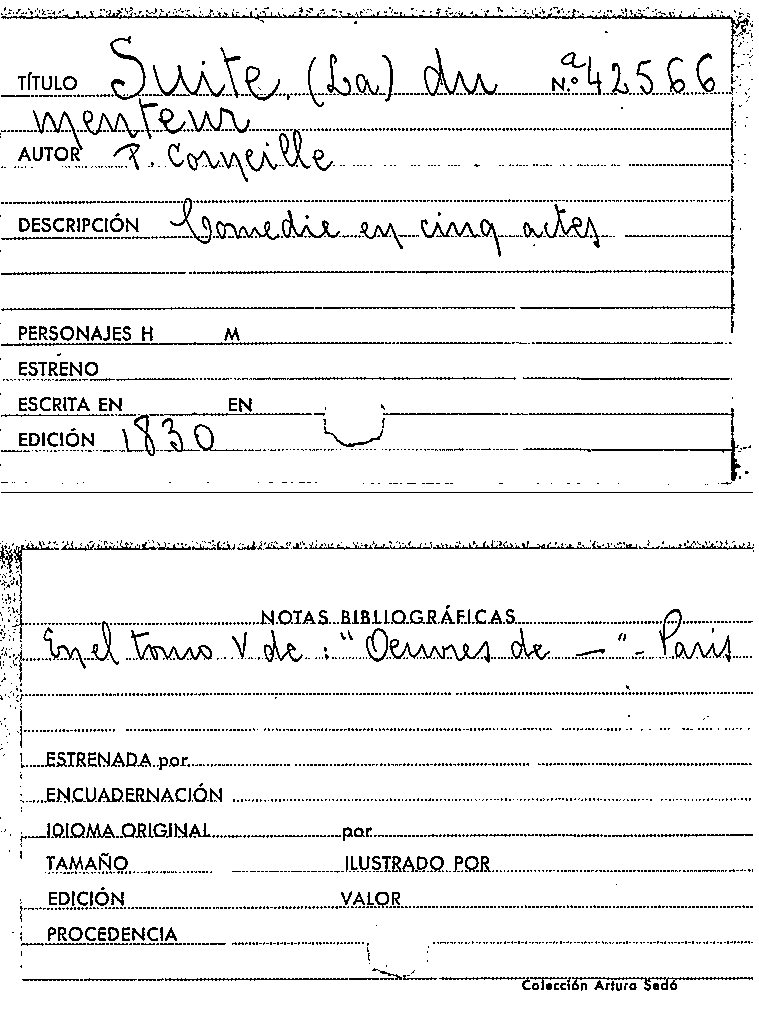 TÍTULO Suite, (La) du N.º a 42566
menteur
AUTOR P. Corneille
DESCRIPCIÓN Comedie en cinq actes
PERSONAJES H M
ESTRENO
ESCRITA EN EN
EDICIÓN 1830
NOTAS BIBLIOGRÁFICAS
En el tomo V de: "Oeuvres de —" - Paris
ESTRENADA por
ENCUADERNACIÓN
IDIOMA ORIGINAL por
TAMAÑO ILUSTRADO POR
EDICIÓN VALOR
PROCEDENCIA
Colección Arturo Sedó